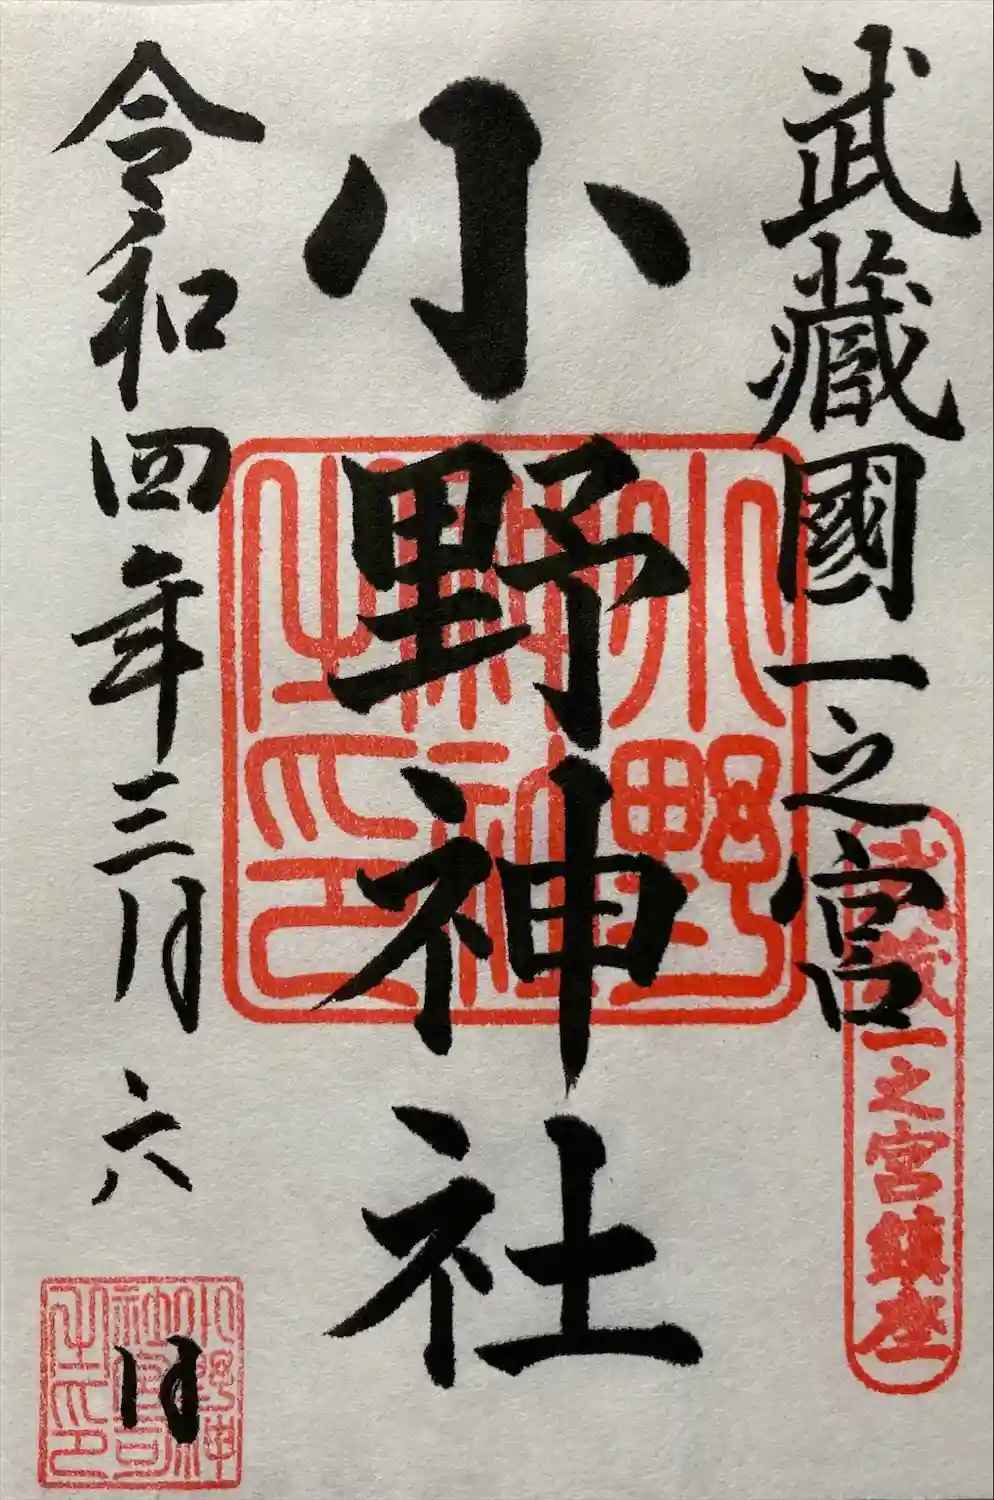 武藏國一之宮
武蔵一之宮鎮座
小野神社
小野神社之印
令和四年三月六日
小野神社宮司之印